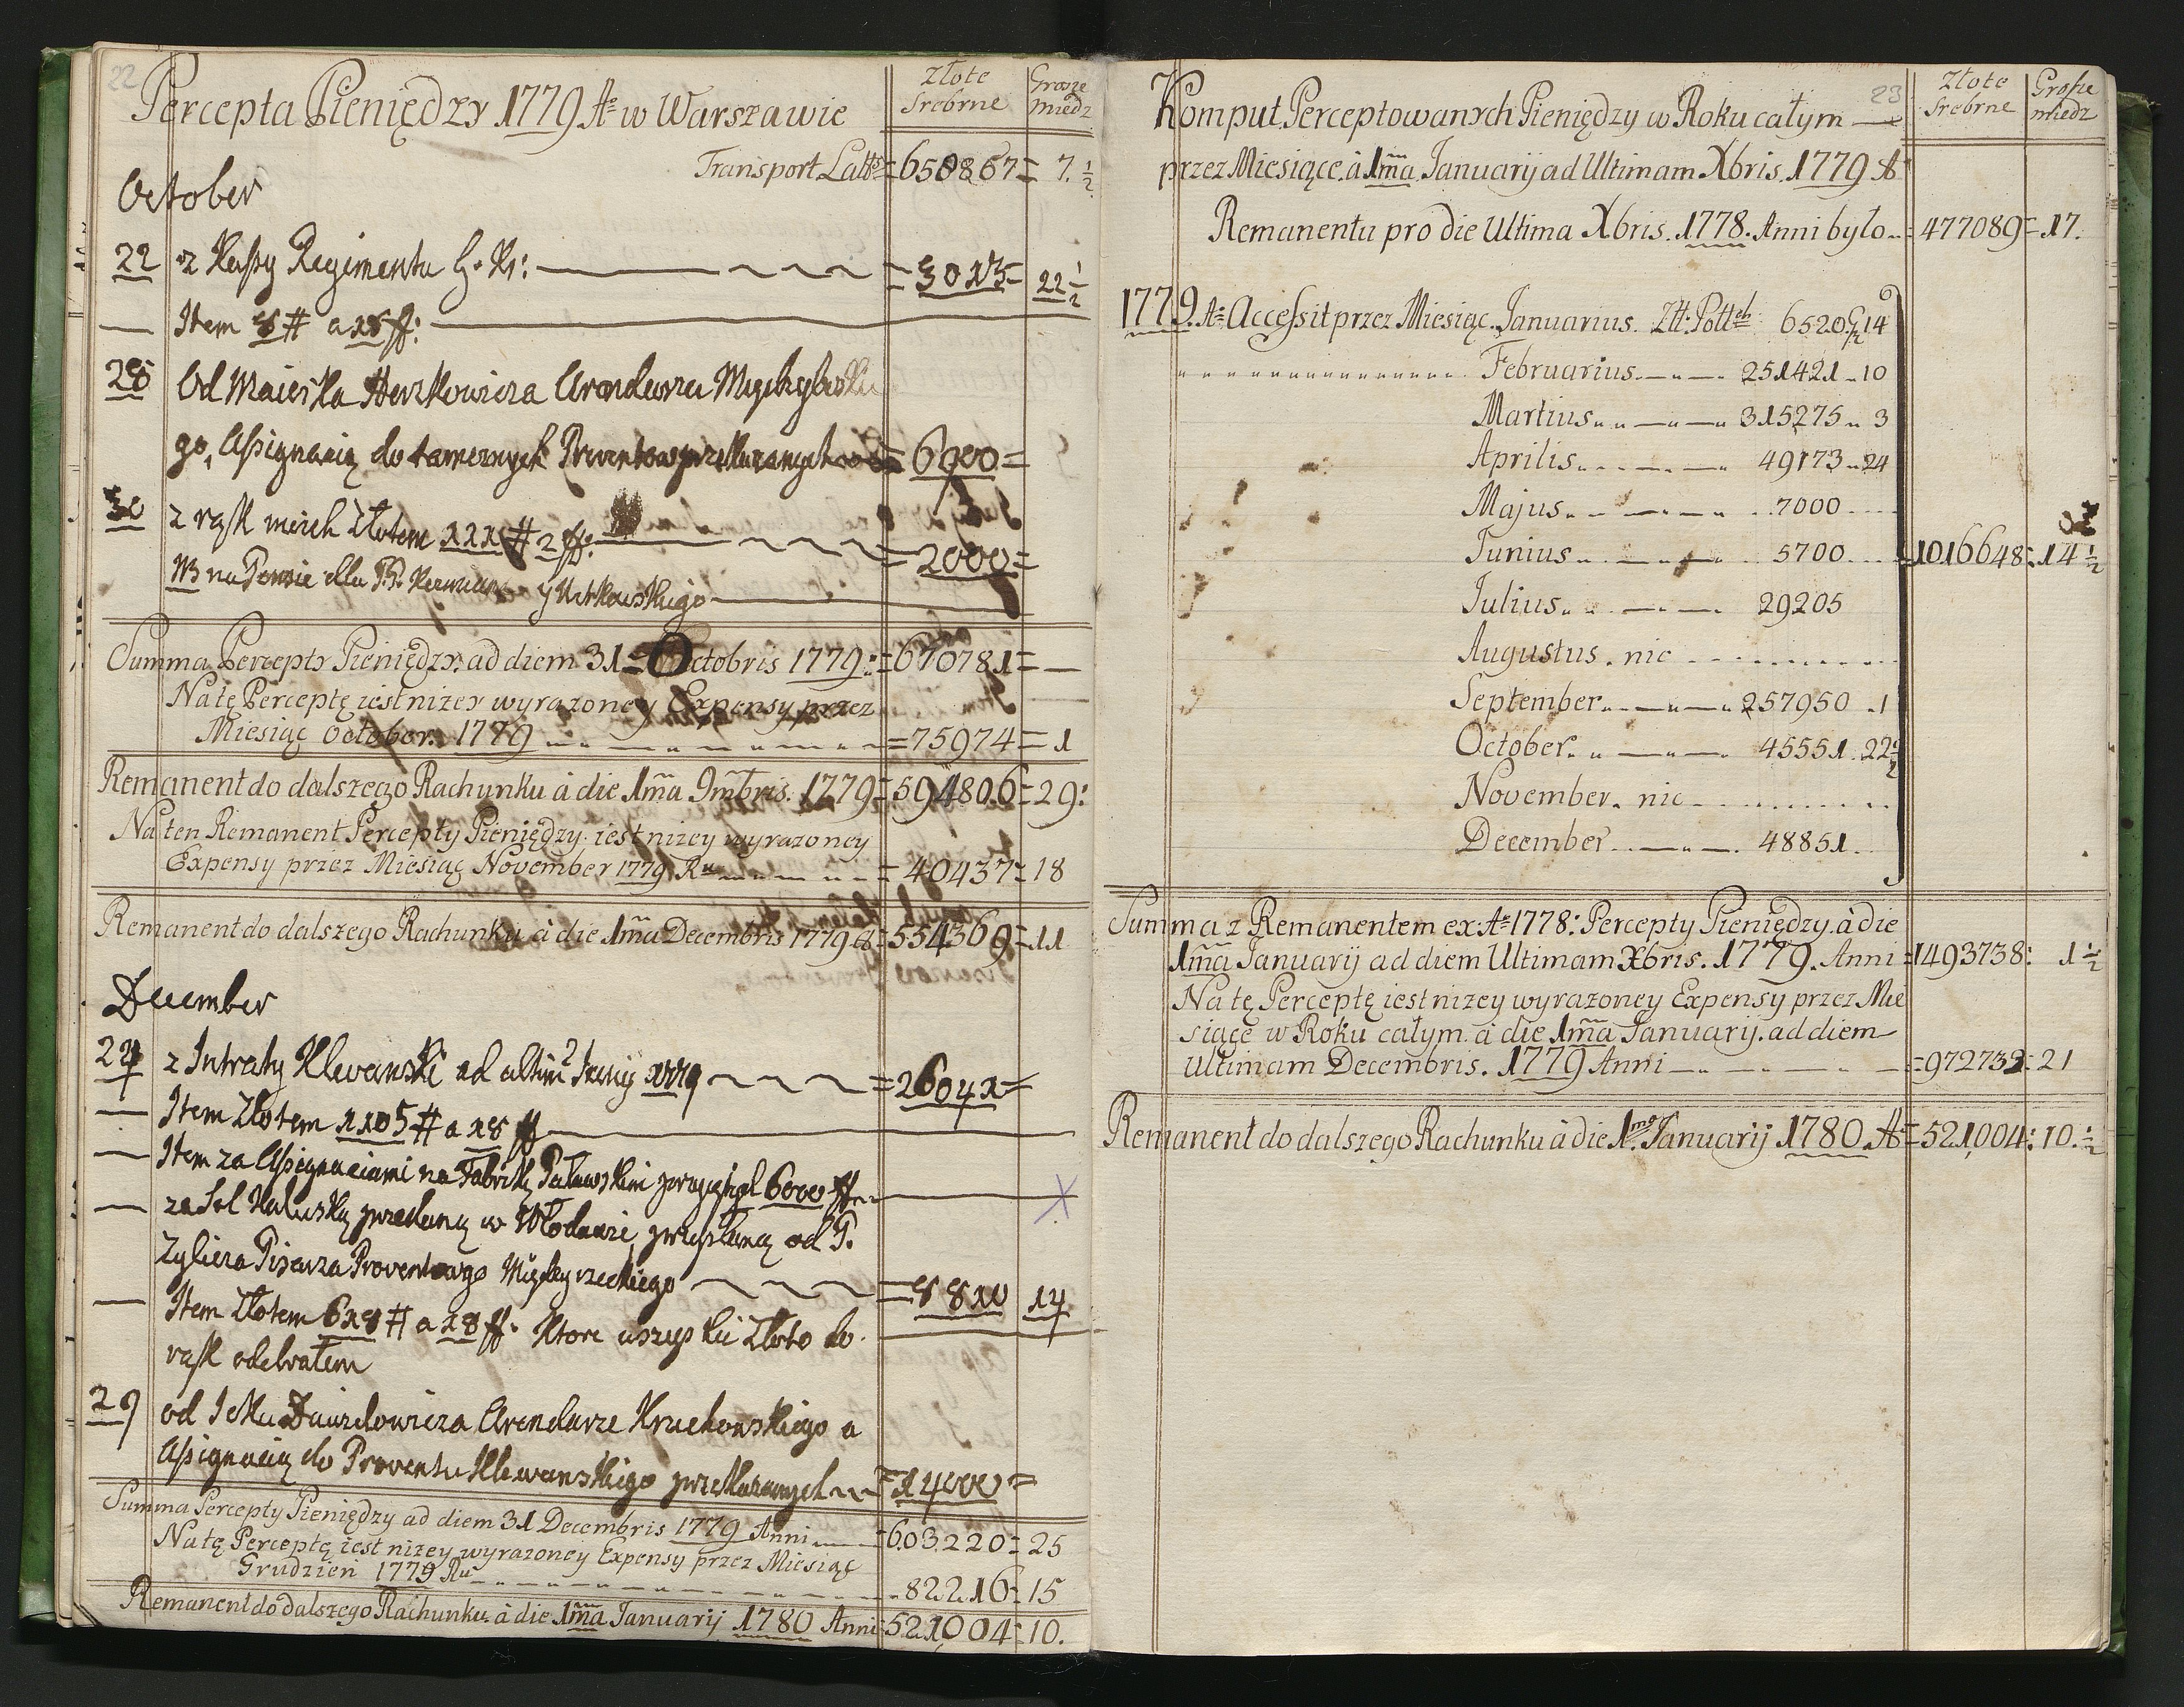 22
Percepta Pieniędzy 1779 A= w Warszawie
Złote Srebrne
Grosze miedz
Transport Latt =650867= 7. 1/2
October
22 z Kassy Regimentu =3015= 22 1/2
Item # a 18 ff:
28 Od Maieska Herszkowicza Arendarza
go, Assignacią do Prowentow =6000=
30 z rąk moich Złotem 111 # 2 ff: =2000=
NB na dla
Summa Percepty Pieniędzy: ad diem 31= Octobris 1779: =670781=
Na tę Perceptę iest niżey wyrazoney Expensy przez
Miesiąc October. 1779 =75974= 1
Remanent do dalszego Rachunku à die 1ma 9mbris. 1779 =594806=29:
Na ten Remanent Percepty Pieniędzy iest niżey wyrazoney
Expensy przez Miesiąc November 1779 Ru =40437=18
Remanent do dalszego Rachunku à die 1ma Decembris 1779 A =554369=11
December
24 z Intraty Klevanski ad ultim Juny 1779 =26041=
Item Złotem 1105 # a 18 ff
Item za Assignaciami na Fabrikę Puławskiei 6000 ff
za Sol przedaną w Włodawie, przysłaną od P.
Pisarza Prowentowego Międzyrzeckiego =8810 14
Item Złotem 618 # a 18 ff. Ktore wszystkie Złoto do
rąk odebrałem
29 od Icka Dawidowicza Arendarza a
Assignacią do Prowentu Klewanskiego =14000=
Summa Percepty Pieniędzy ad diem 31 Decembris 1779 Anni =603220=25
Na tę Perceptę iest niżey wyrazoney Expensy przez Miesiąc
Grudzień 1779 Ru 82216=15
Remanent do dalszego Rachunku à die 1ma Januarij 1780 Anni =521004=10.
23
Komput Perceptowanych Pieniędzy w Roku całym
Złote Srebrne
Grosze miedz
przez Miesiące à 1ma Januarij ad Ultimam Xbris. 1779 A
Remanentu pro die Ultima Xbris. 1778. Anni było =477089=17.
1779. A= Accessit przez Miesiąc. Januarius. 6520 14
Februarius 251421 10
Martius 315275 3
Aprilis 49173 24
Majus 7000
Junius 5700 =1016648: 14 1/2
Julius 29205
Augustus. nic
September 257950 1
October 45551. 22 1/2
November. nic
December 48851.
Summa z Remanentem ex A= 1778: Percepty Pieniędzy à die
1ma Januarij ad diem Ultimam Xbris. 1779. Anni =1493738: 1 1/2
Na tę Perceptę iest niżey wyrazoney Expensy przez Mie
siące w Roku całym à die 1ma Januarij. ad diem
Ultimam Decembris. 1779 Anni =972733: 21
Remanent do dalszego Rachunku à die 1ma Januarij 1780 A =521004: 10. 1/2